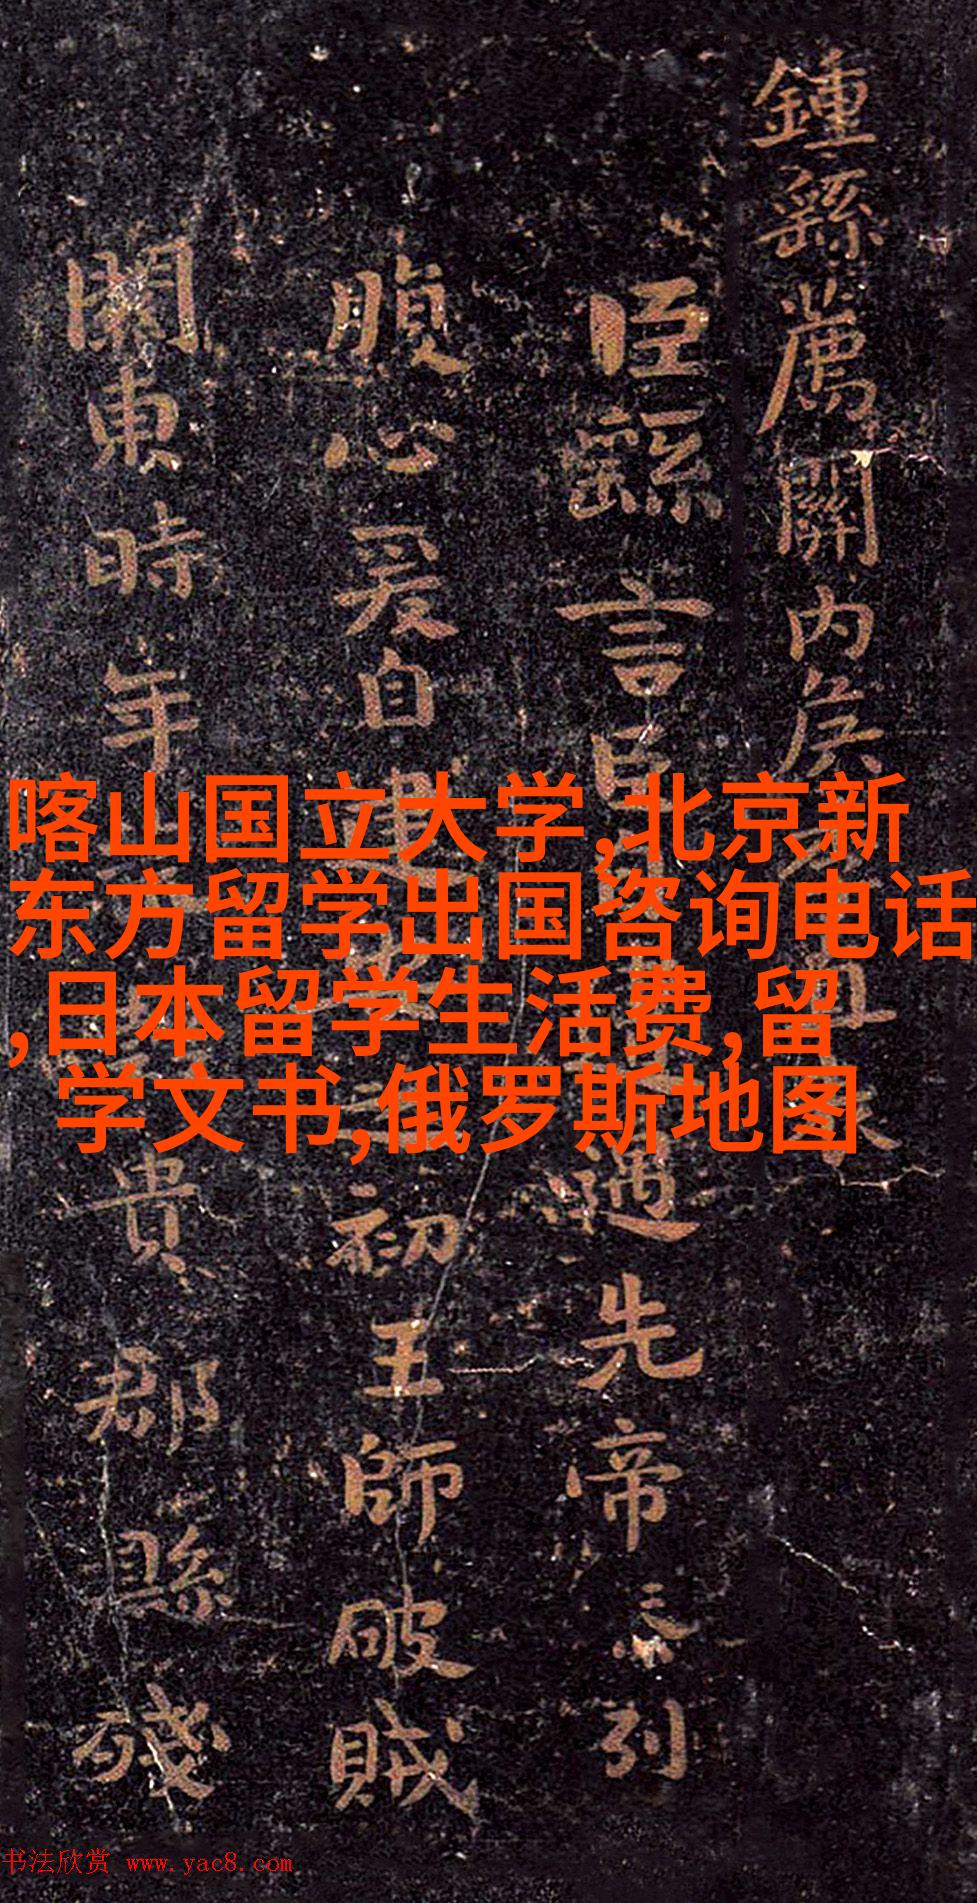 鍾繇薦關内侯
臣繇言臣
遇先帝忝列
腹心爰自建
初王師破賊
關東時年
貴郡縣殘
喀山国立大学,北京新
东方留学出国咨询电话
,日本留学生活费,留
学文书,俄罗斯地图
书法欣赏 www.yac8.com